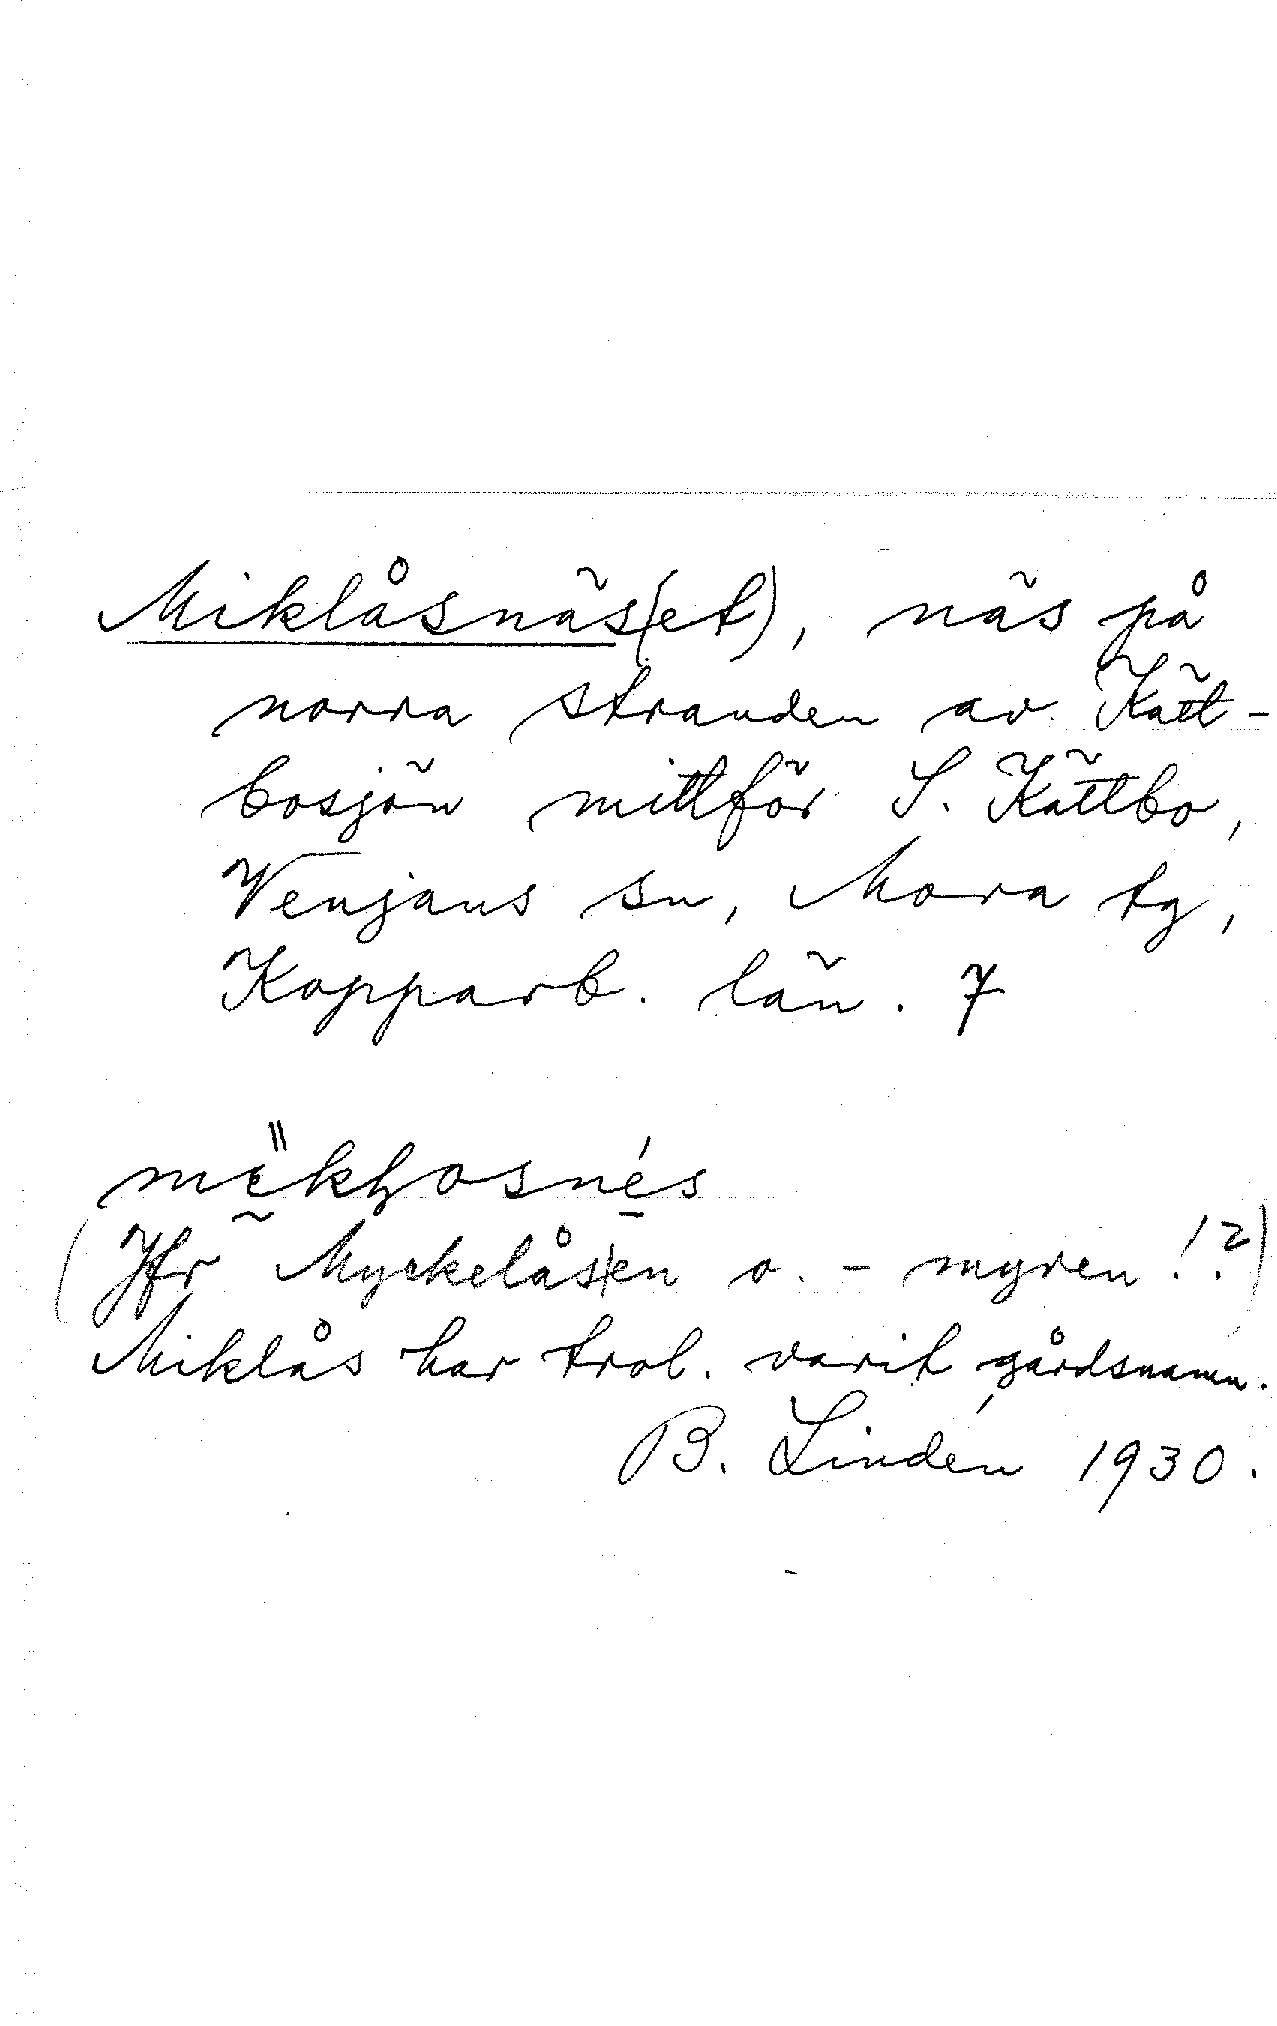 Miklåsnäs(et), näs på
norra stranden av Kätt-
bosjön mittför S. Kättbo,
Venjans sn, Mora tg,
Kopparb. län. 7
(Jfr Myckelås|en o. - myren!?)
Miklås har trol. varit gårdsnamn.
B. Lindén 1930.